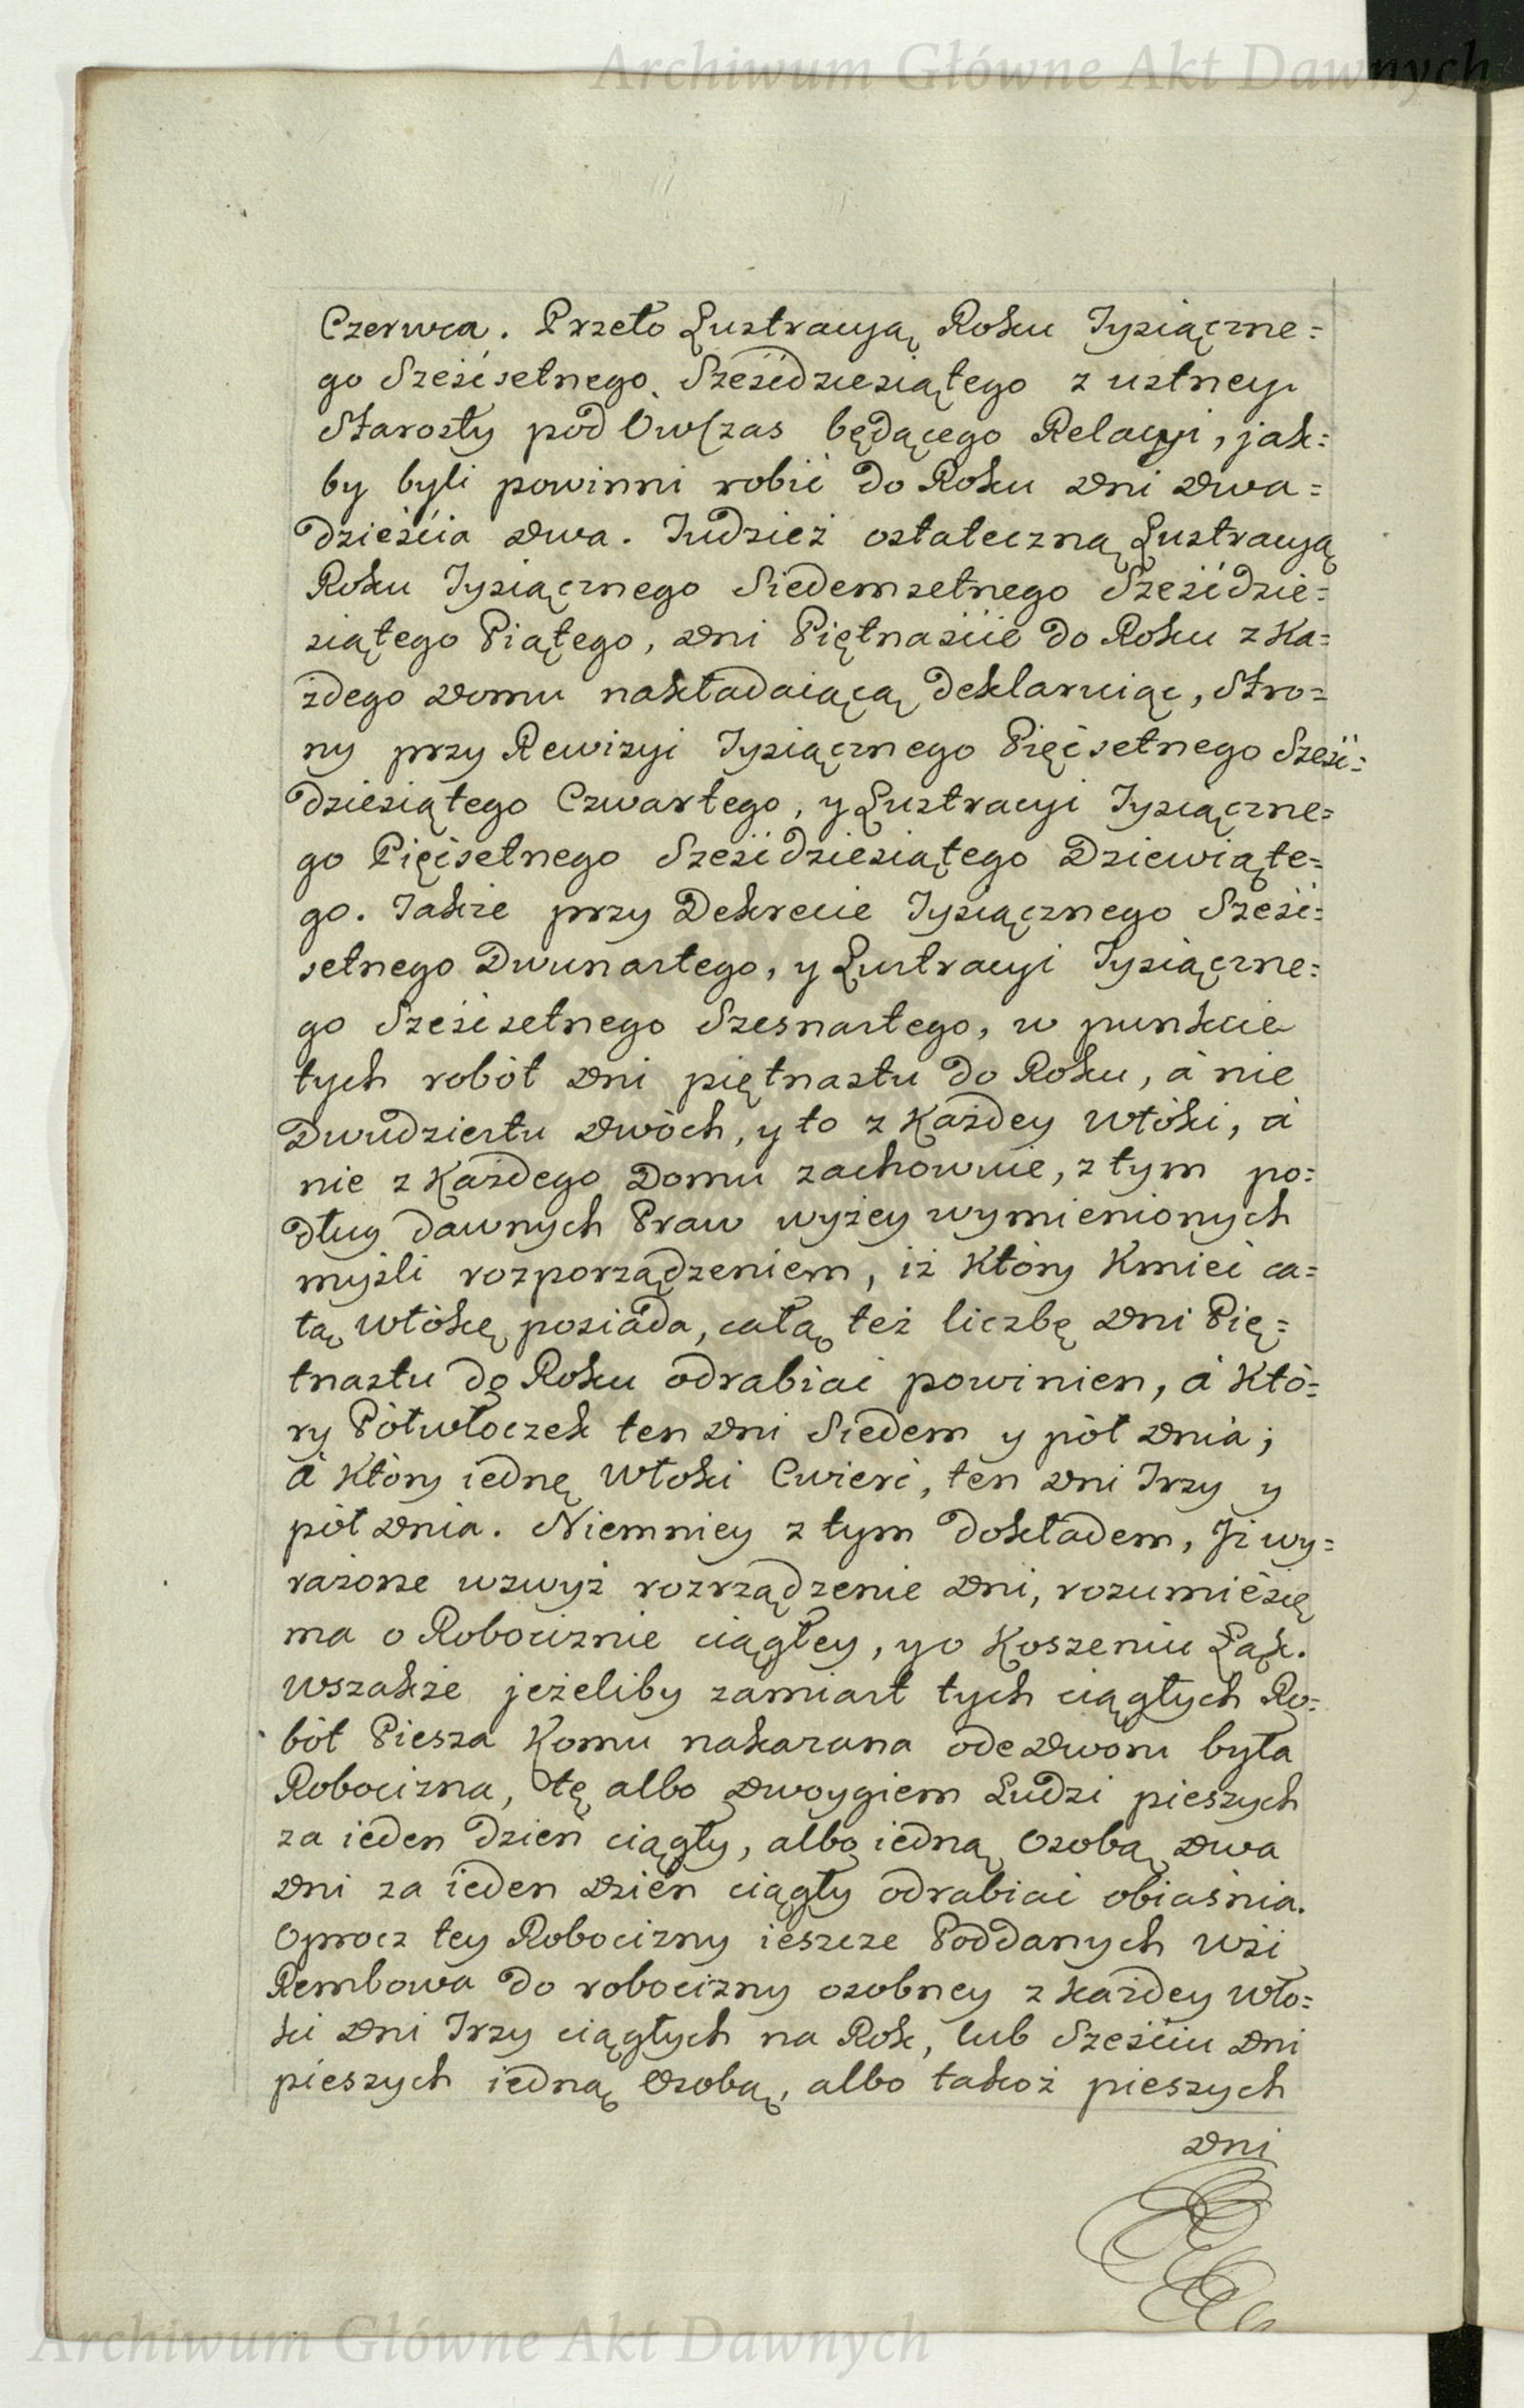 Archiwum Główne Akt Dawnych
Czerwca. Przeto Lustracyą Roku Tysiączne=
go Sześćsetnego Sześćdziesiątego z ustney
Starosty pod Owczas będącego Relacyi, jak=
by byli powinni robić do Roku Dni Dwa=
dzieścia Dwa. Tudzież ostateczną Lustracyą
Roku Tysiącznego Siedemsetnego Sześćdzie=
siątego Piątego, Dni Piętnaście do Roku z Ka=
żdego Domu nakładaiącą deklaruiąc, Stro=
ny przy Rewizyi Tysiącznego Pięćsetnego Sześć=
dziesiątego Czwartego, y Lustracyi Tysiączne=
go Pięćsetnego Sześćdziesiątego Dziewiąte=
go. Także przy Dekrecie Tysiącznego Sześć=
setnego Dwunastego, y Lustracyi Tysiączne=
go Sześćsetnego Szesnastego, w punkcie
tych robót Dni piętnastu do Roku, á nie
Dwudziestu Dwóch, y to z Każdey Włóki, á
nie z Każdego Domu zachowuie, z tym po=
dług dawnych Praw wyżey wymienionych
myśli rozporządzeniem, iż Który Kmieć ca=
łą Włókę posiada, całą też liczbę Dni Pię=
tnastu do Roku odrabiać powinien, á Któ=
ry Półwłoczek ten Dni Siedem y pół Dnia;
á Który iednę Włoki Cwierć, ten Dni Trzy y
pół Dnia. Niemniey z tym dokładem, Iż wy=
rażone wzwyż rozrządzenie Dni, rozumiéć się
ma o Robociznie ciągłey, y o Koszeniu Łąk.
Wszakże jeżeliby zamiast tych ciągłych Ro=
bót Piesza Komu nakazana ode Dworu była
Robocizna, tę albo Dwoygiem Ludzi pieszych
za ieden dzień ciągły, albo iedną Osobą Dwa
Dni za ieden Dzień ciągły odrabiać obiaśnia.
Oprocz tey Robocizny ieszcze Poddanych Wsi
Rembowa do robocizny osobney z każdey Wło=
ki Dni Trzy ciągłych na Rok, lub Sześciu Dni
pieszych iedną Osobą, albo takoż pieszych
Dni
Archiwum Główne Akt Dawnych